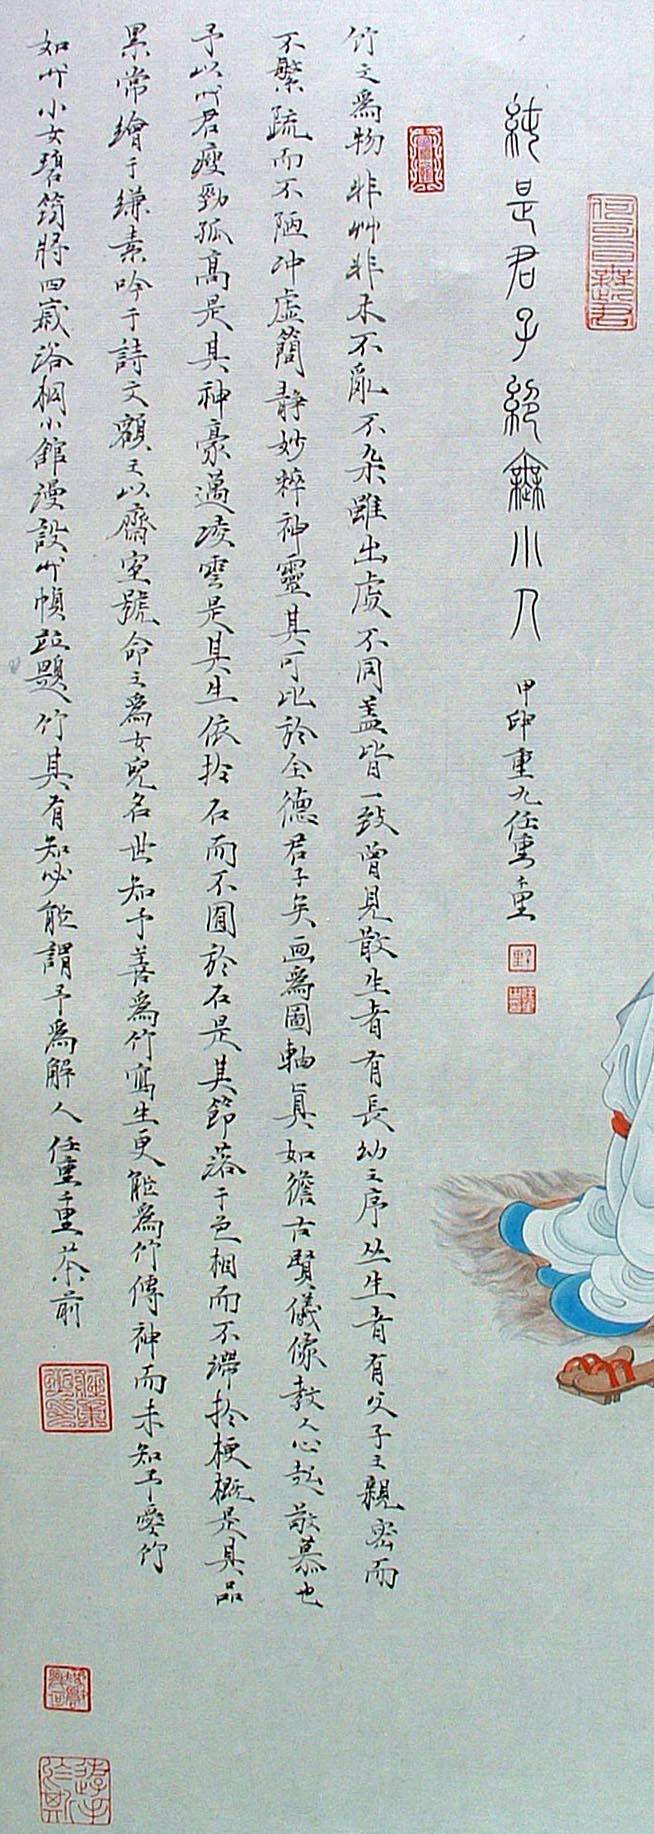 何可一日無此君
純是君子絕無小人
重九任重
竹之爲物非艸非木不亂不雜雖出處不同蓋皆一致曾見散生者有長幼之序丛生者有父子之親密而
不繁疏而不陋冲虛簡靜妙粹神靈其可比於全德君子矣画爲圖軸真如瞻古賢儀像教人心起敬慕也
予以此君瘦勁孤高是其神豪邁凌雲是其生依於石而不囿於石是其節落于色相而不滯於梗概是其品
累常繪于縑素吟于詩文額之以齋室號命之爲女兒名世知予善爲竹寫生更能爲竹傳神而未知予愛竹
如此小女碧筠將四歲浴桐小館漫設此幀並題竹其有知必能謂予爲解人任重茶前